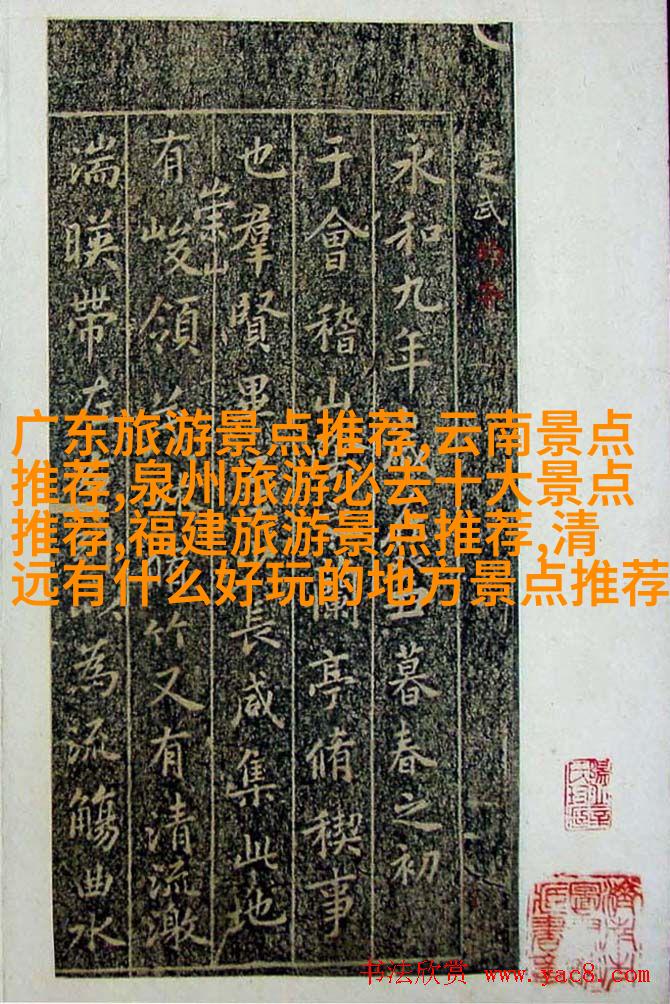 定武
永和九年丑暮春之初
于會稽山蘭亭脩稧事
也羣賢畢長咸集此地
有崇山峻領竹又有清流激
湍暎帶左為流觴曲水
广东旅游景点推荐,云南景点
推荐,泉州旅游必去十大景点
推荐,福建旅游景点推荐,清
远有什么好玩的地方景点推荐
书法欣赏 www.yac8.com